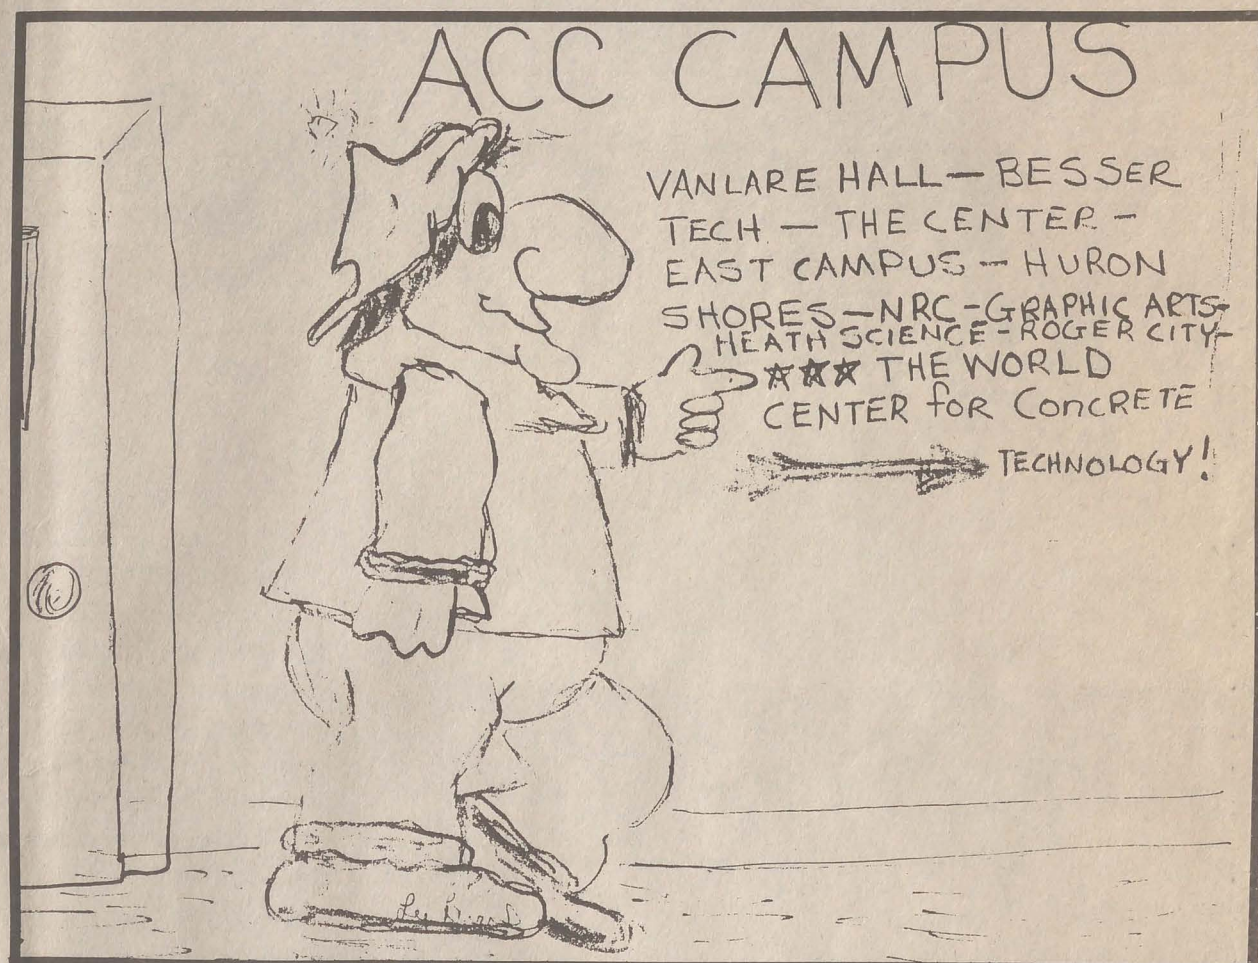 ACC CAMPUS
VANLARE HALL — BESSER
TECH — THE CENTER -
EAST CAMPUS — HURON
SHORES — NRC - GRAPHIC ARTS-
HEATH SCIENCE - ROGER CITY-
★★★ THE WORLD
CENTER for ConCRETE
TECHNOLOGY!